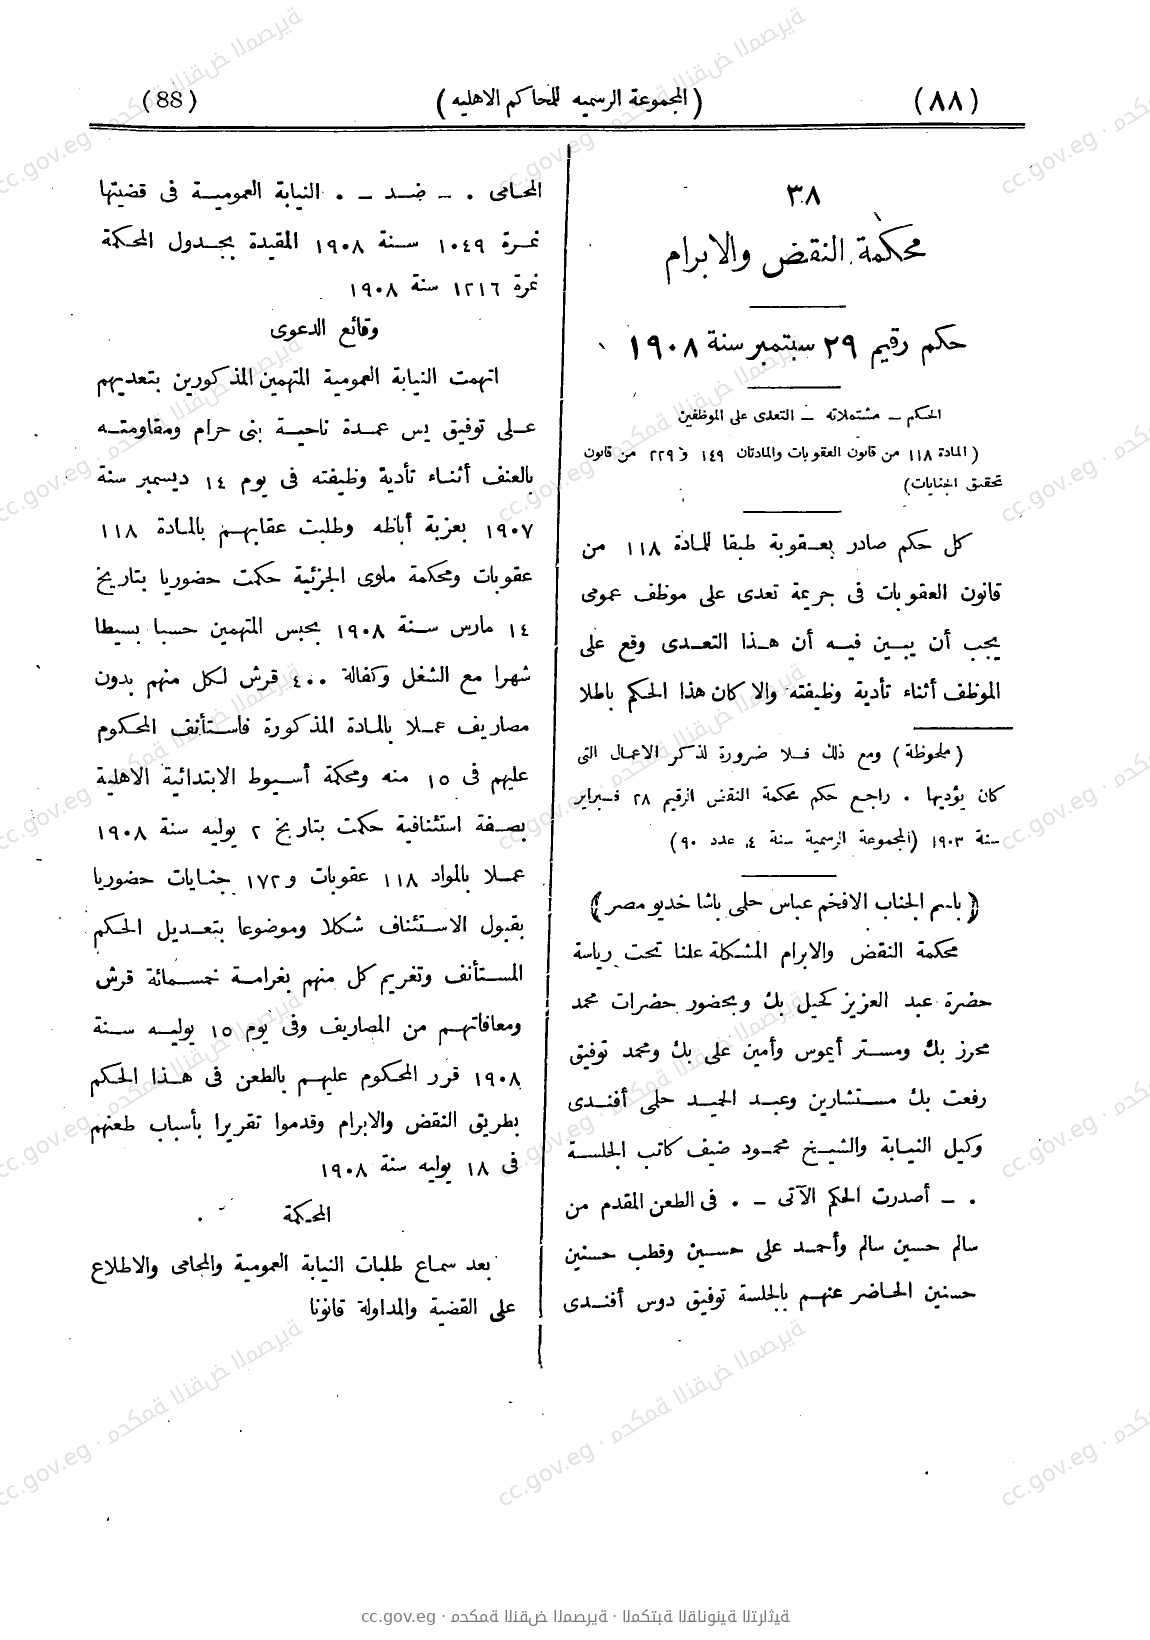 (٨٨)
(المجموعة الرسميه للمحاكم الاهليه)
(88)
٣٨
محكمة النقض والابرام
حكم رقيم ٢٩ سبتمبر سنة ١٩٠٨
الحكم ــ مشتملاته ــ التعدى على الموظفين
(المادة ١١٨ من قانون العقوبات والمادتان ١٤٩ و ٢٢٩ من قانون
تحقيق الجنايات)
كل حكم صادر بعقوبة طبقا للمادة ١١٨ من
قانون العقوبات فى جريمة تعدى على موظف عمومى
يجب أن يبين فيه أن هذا التعدى وقع على
الموظف أثناء تأدية وظيفته والا كان هذا الحكم باطلا
(ملحوظة) ومع ذلك فلا ضرورة لذكر الاعمال التى
كان يؤديها . راجع حكم محكمة النقض الرقيم ٢٨ فبراير
سنة ١٩٠٣ (المجموعة الرسمية سنة ٤. عدد ٩٠)
(باسم الجناب الافخم عباس حلمى باشا خديو مصر)
محكمة النقض والابرام المشكلة علنا تحت رياسة
حضرة عبد العزيز كحيل بك وبحضور حضرات محمد
محرز بك ومستر أيموس وأمين على بك ومحمد توفيق
رفعت بك مستشارين وعبد الحميد حلمى أفندى
وكيل النيابة والشيخ محمود ضيف كاتب الجلسة
. ــ أصدرت الحكم الآتى ــ . فى الطعن المقدم من
سالم حسين سالم وأحمد على حسين وقطب حسنين
حسنين الحاضر عنهم بالجلسة توفيق دوس أفندى
المحامى . ــ ضد ــ . النيابة العمومية فى قضيتها
نمرة ١٠٤٩ سنة ١٩٠٨ المقيدة بجدول المحكمة
نمرة ١٢١٦ سنة ١٩٠٨
وقائع الدعوى
اتهمت النيابة العمومية المتهمين المذكورين بتعديهم
على توفيق يس عمدة ناحية بنى حرام ومقاومته
بالعنف أثناء تأدية وظيفته فى يوم ١٤ ديسمبر سنة
١٩٠٧ بعزبة أباظه وطلبت عقابهم بالمادة ١١٨
عقوبات ومحكمة ملوى الجزئية حكمت حضوريا بتاريخ
١٤ مارس سنة ١٩٠٨ بحبس المتهمين حسبا بسيطا
شهرا مع الشغل وكفالة ٤٠٠ قرش لكل منهم بدون
مصاريف عملا بالمادة المذكورة فاستأنف المحكوم
عليهم فى ١٥ منه ومحكمة أسيوط الابتدائية الاهلية
بصفة استئنافية حكمت بتاريخ ٢ يوليه سنة ١٩٠٨
عملا بالمواد ١١٨ عقوبات و١٧٢ جنايات حضوريا
بقبول الاستئناف شكلا وموضوعا بتعديل الحكم
المستأنف وتغريم كل منهم بغرامة خمسمائة قرش
ومعافاتهم من المصاريف وفى يوم ١٥ يوليه سنة
١٩٠٨ قرر المحكوم عليهم بالطعن فى هذا الحكم
بطريق النقض والابرام وقدموا تقريرا بأسباب طعنهم
فى ١٨ يوليه سنة ١٩٠٨
المحكمة
بعد سماع طلبات النيابة العمومية والمحامى والاطلاع
على القضية والمداولة قانونا
cc.gov.eg · محكمة النقض المصرية · المكتبة القانونية التراثية